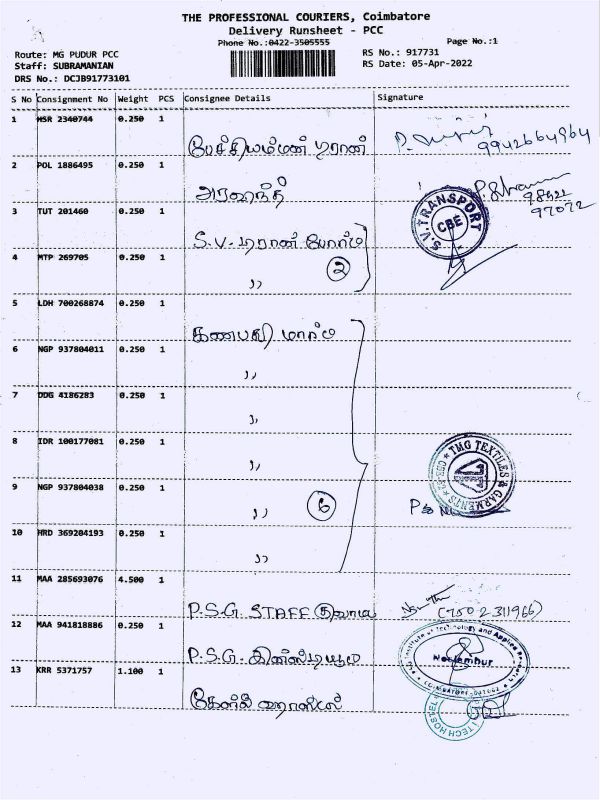 THE PROFESSIONAL COURIERS, Coimbatore
Delivery Runsheet - PCC
Phone No.:0422-3505555
Page No.:1
Route: MG PUDUR PCC
Staff: SUBRAMANIAN
DRS No.: DCJB91773101
RS No.: 917731
RS Date: 05-Apr-2022
S No Consignment No Weight PCS Consignee Details Signature
1 MSR 2340744 0.250 1
9942664964
2 POL 1886495 0.250 1
அரவிந்த்
3 TUT 201460 0.250 1
S.V. டிரான்
S.V. TRANSPORT
CBE
4 MTP 269705 0.250 1
,, 2
5 LDH 700268874 0.250 1
கணபதி
6 NGP 937804011 0.250 1
,,
7 DDG 4186283 0.250 1
,,
8 IDR 100177081 0.250 1
,,
TMG TEXTILES & GARMENTS
9 NGP 937804038 0.250 1
,, 6
10 HRD 369204193 0.250 1
,,
11 MAA 285693076 4.500 1
P.S.G. STAFF
(7502311966)
12 MAA 941818886 0.250 1
P.S.G.
Institute of Technology and Applied Research
Neelambur
COIMBATORE-641062
13 KRR 5371757 1.100 1
TECH HOSTEL